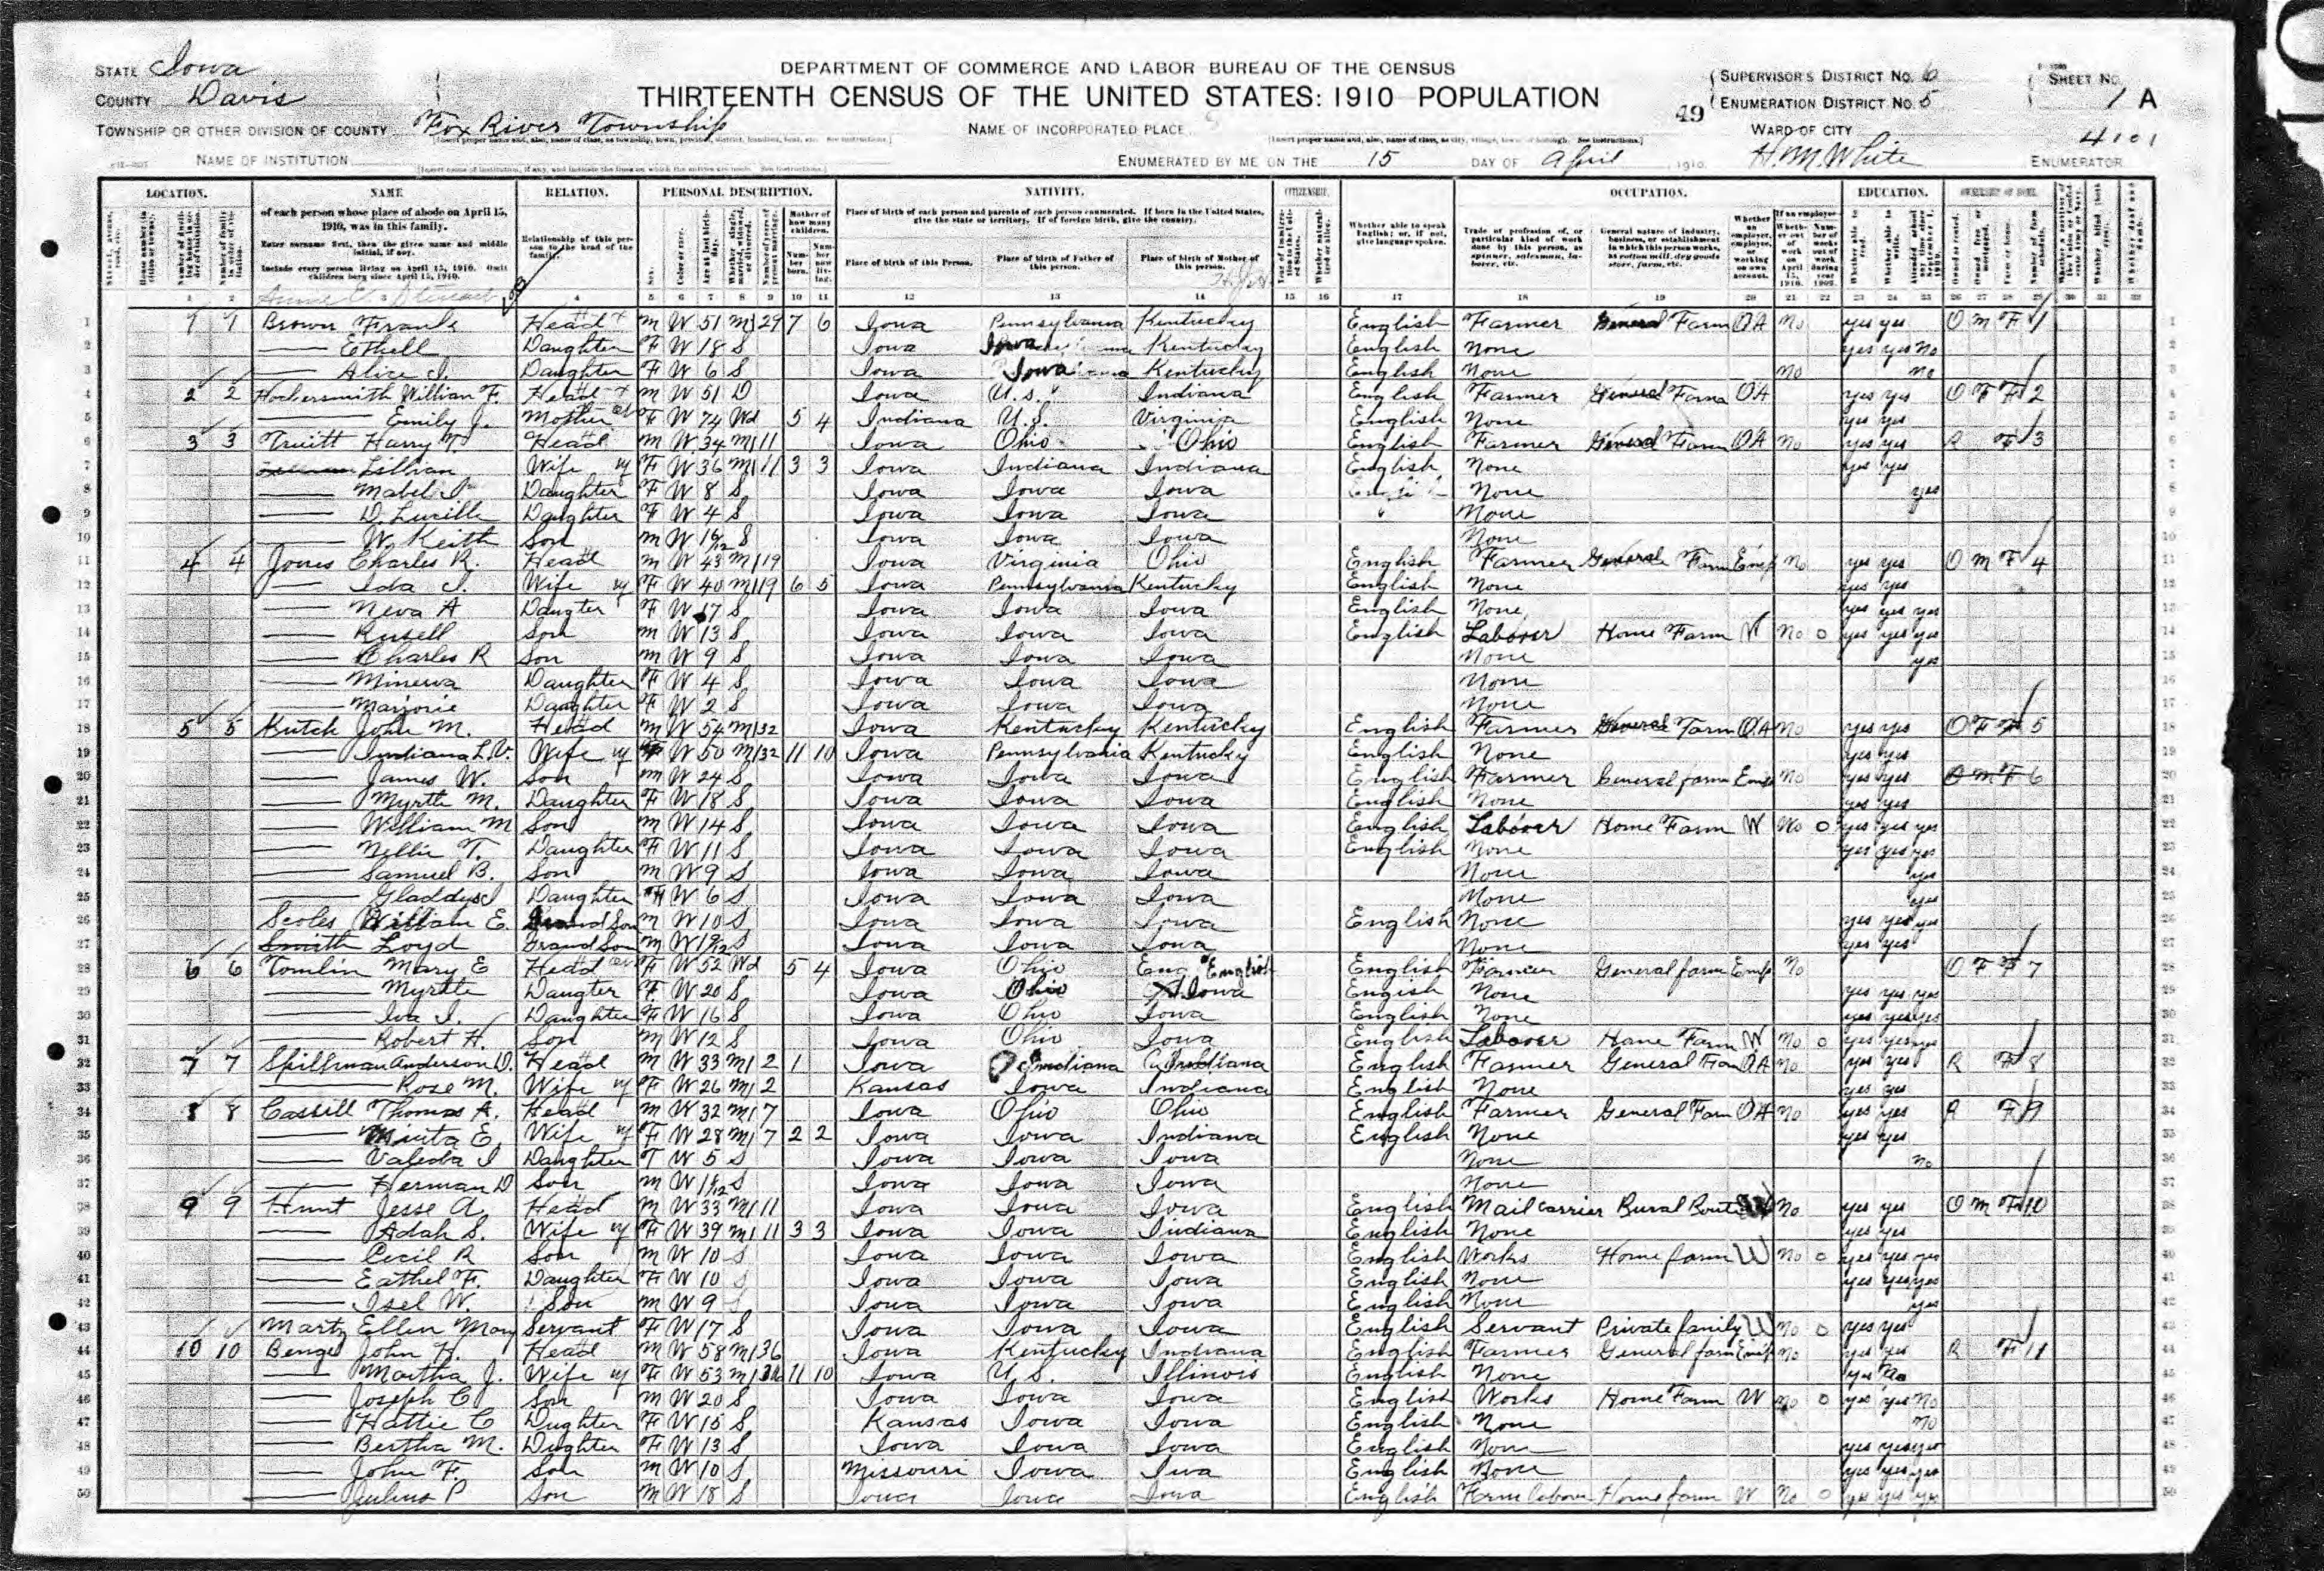 STATE Iowa
COUNTY Davis
TOWNSHIP OR OTHER DIVISION OF COUNTY Fox River Township
NAME OF INSTITUTION
DEPARTMENT OF COMMERCE AND LABOR BUREAU OF THE CENSUS
THIRTEENTH CENSUS OF THE UNITED STATES: 1910 POPULATION
NAME OF INCORPORATED PLACE
ENUMERATED BY ME ON THE 15 DAY OF April, 1910.
49
SUPERVISOR'S DISTRICT No. 6
ENUMERATION DISTRICT No. 5
SHEET No. 1 A
WARD OF CITY
4101
H. M. White ENUMERATOR
LOCATION. NAME RELATION. PERSONAL DESCRIPTION. NATIVITY. CITIZENSHIP. OCCUPATION. EDUCATION. OWNERSHIP OF HOME.
of each person whose place of abode on April 15, 1910, was in this family.
Enter surname first, then the given name and middle initial, if any.
Include every person living on April 15, 1910. Omit children born since April 15, 1910.
Relationship of this person to the head of the family.
Place of birth of each person and parents of each person enumerated. If born in the United States, give the state or territory. If of foreign birth, give the country.
Place of birth of this Person. Place of birth of Father of this person. Place of birth of Mother of this person.
Whether able to speak English; or, if not, give language spoken.
1 2 4 5 6 7 8 9 10 11 12 13 14 15 16 17 18 19 20 21 22 23 24 25 26 27 28 29 30 31 32
1 1 1 Brown Frank Head m W 51 m1 29 7 6 Iowa Pennsylvania Kentucky English Farmer General Farm OA No yes yes O M F 1
2 Ethell Daughter F W 18 S Iowa Iowa Kentucky English None yes yes No
3 Alice I. Daughter F W 6 S Iowa Iowa Kentucky English None no no
4 2 2 Hockersmith William F. Head m W 51 D Iowa U.S. Indiana English Farmer General Farm OA yes yes O F F 2
5 Emily J. Mother F W 74 Wd 5 4 Indiana U.S. Virginia English None yes yes
6 3 3 Truitt Harry T. Head m W 34 m1 11 Iowa Ohio Ohio English Farmer General Farm OA No yes yes R F 3
7 Lillian Wife F W 36 m1 11 3 3 Iowa Indiana Indiana English None yes yes
8 Mabel I. Daughter F W 8 S Iowa Iowa Iowa None yes
9 D. Lucille Daughter F W 4 S Iowa Iowa Iowa None
10 W. Keith Son m W S Iowa Iowa Iowa None
11 4 4 Jones Charles R. Head m W 43 m1 19 Iowa Virginia Ohio English Farmer General Farm Emp No yes yes O M F 4
12 Ida I. Wife F W 40 m1 19 6 5 Iowa Pennsylvania Kentucky English None yes yes
13 Neva A Daugter F W 17 S Iowa Iowa Iowa English None yes yes yes
14 Russell Son m W 13 S Iowa Iowa Iowa English Laborer Home Farm W No 0 yes yes yes
15 Charles R Son m W 9 S Iowa Iowa Iowa None yes
16 Minerva Daughter F W 4 S Iowa Iowa Iowa None
17 Marjorie Daughter F W 2 S Iowa Iowa Iowa None
18 5 5 Kutch John M. Head m W 54 m1 32 Iowa Kentucky Kentucky English Farmer General Farm OA No yes yes O F F 5
19 Indiana L.V. Wife F W 50 m1 32 11 10 Iowa Pennsylvania Kentucky English None yes yes
20 James W. Son m W 24 S Iowa Iowa Iowa English Farmer General farm Emp No yes yes O M F 6
21 Myrtle M. Daughter F W 18 S Iowa Iowa Iowa English None yes yes
22 William M Son m W 14 S Iowa Iowa Iowa English Laborer Home Farm W No 0 yes yes yes
23 Nellie T. Daughter F W 11 S Iowa Iowa Iowa English None yes yes yes
24 Samuel B. Son m W 9 S Iowa Iowa Iowa None yes
25 Gladdys Daughter F W 6 S Iowa Iowa Iowa None yes
26 Scoles William E. Grand Son m W 10 S Iowa Iowa Iowa English None yes yes yes
27 Smith Loyd Grand Son m W S Iowa Iowa Iowa None yes yes
28 6 6 Tomlin Mary E Head F W 52 Wd 5 4 Iowa Ohio Eng English English Farmer General farm Emp No O F F 7
29 Myrtle Daugter F W 20 S Iowa Ohio Iowa Engish None yes yes yes
30 Iva I. Daughter F W 16 S Iowa Ohio Iowa English None yes yes yes
31 Robert H. Son m W 12 S Iowa Ohio Iowa English Laborer Home Farm W No 0 yes yes yes
32 7 7 Spillman Anderson D. Head m W 33 m1 2 1 Iowa Indiana Indiana English Farmer General Farm OA no yes yes R F 8
33 Rose M. Wife F W 26 m1 2 Kansas Iowa Indiana English None yes yes
34 8 8 Cassill Thomas A. Head m W 32 m1 7 Iowa Ohio Ohio English Farmer General Farm OA No yes yes R F 9
35 Minta E. Wife F W 28 m1 7 2 2 Iowa Iowa Indiana English None yes yes
36 Daughter W 5 S Iowa Iowa Iowa None no
37 Herman D Son m W S Iowa Iowa Iowa None
38 9 9 Hunt Jesse A. Head m W 33 m1 11 Iowa Iowa Iowa English Mail carrier Rural Route W No yes yes O M F 10
39 Adah S. Wife F W 39 m1 11 3 3 Iowa Iowa Indiana English None yes yes
40 Cecil R Son m W 10 S Iowa Iowa Iowa English Works Home farm W No 0 yes yes yes
41 Eathel F. Daughter F W 10 S Iowa Iowa Iowa English None yes yes yes
42 Isel W. Son m W 9 S Iowa Iowa Iowa English None yes
43 Martz Ellen May Servant F W 17 S Iowa Iowa Iowa English Servant Private family W no 0 yes yes
44 10 10 Benge John H. Head m W 58 m1 36 Iowa Kentucky Indiana English Farmer General farm Emp no yes yes R F 11
45 Martha J. Wife F W 53 m1 36 11 10 Iowa U.S. Illinois English None yes No
46 Joseph C Son m W 20 S Iowa Iowa Iowa English Works Home Farm W no 0 yes yes No
47 Hattie C Dughter F W 15 S Kansas Iowa Iowa English None no
48 Bertha M. Dughter F W 13 S Iowa Iowa Iowa English None yes yes yes
49 John F. Son m W 10 S Missouri Iowa Iwa English None yes yes yes
50 Julius P Son m W 18 S Iowa Iowa Iowa English Farm labor Home farm W No 0 yes yes yes